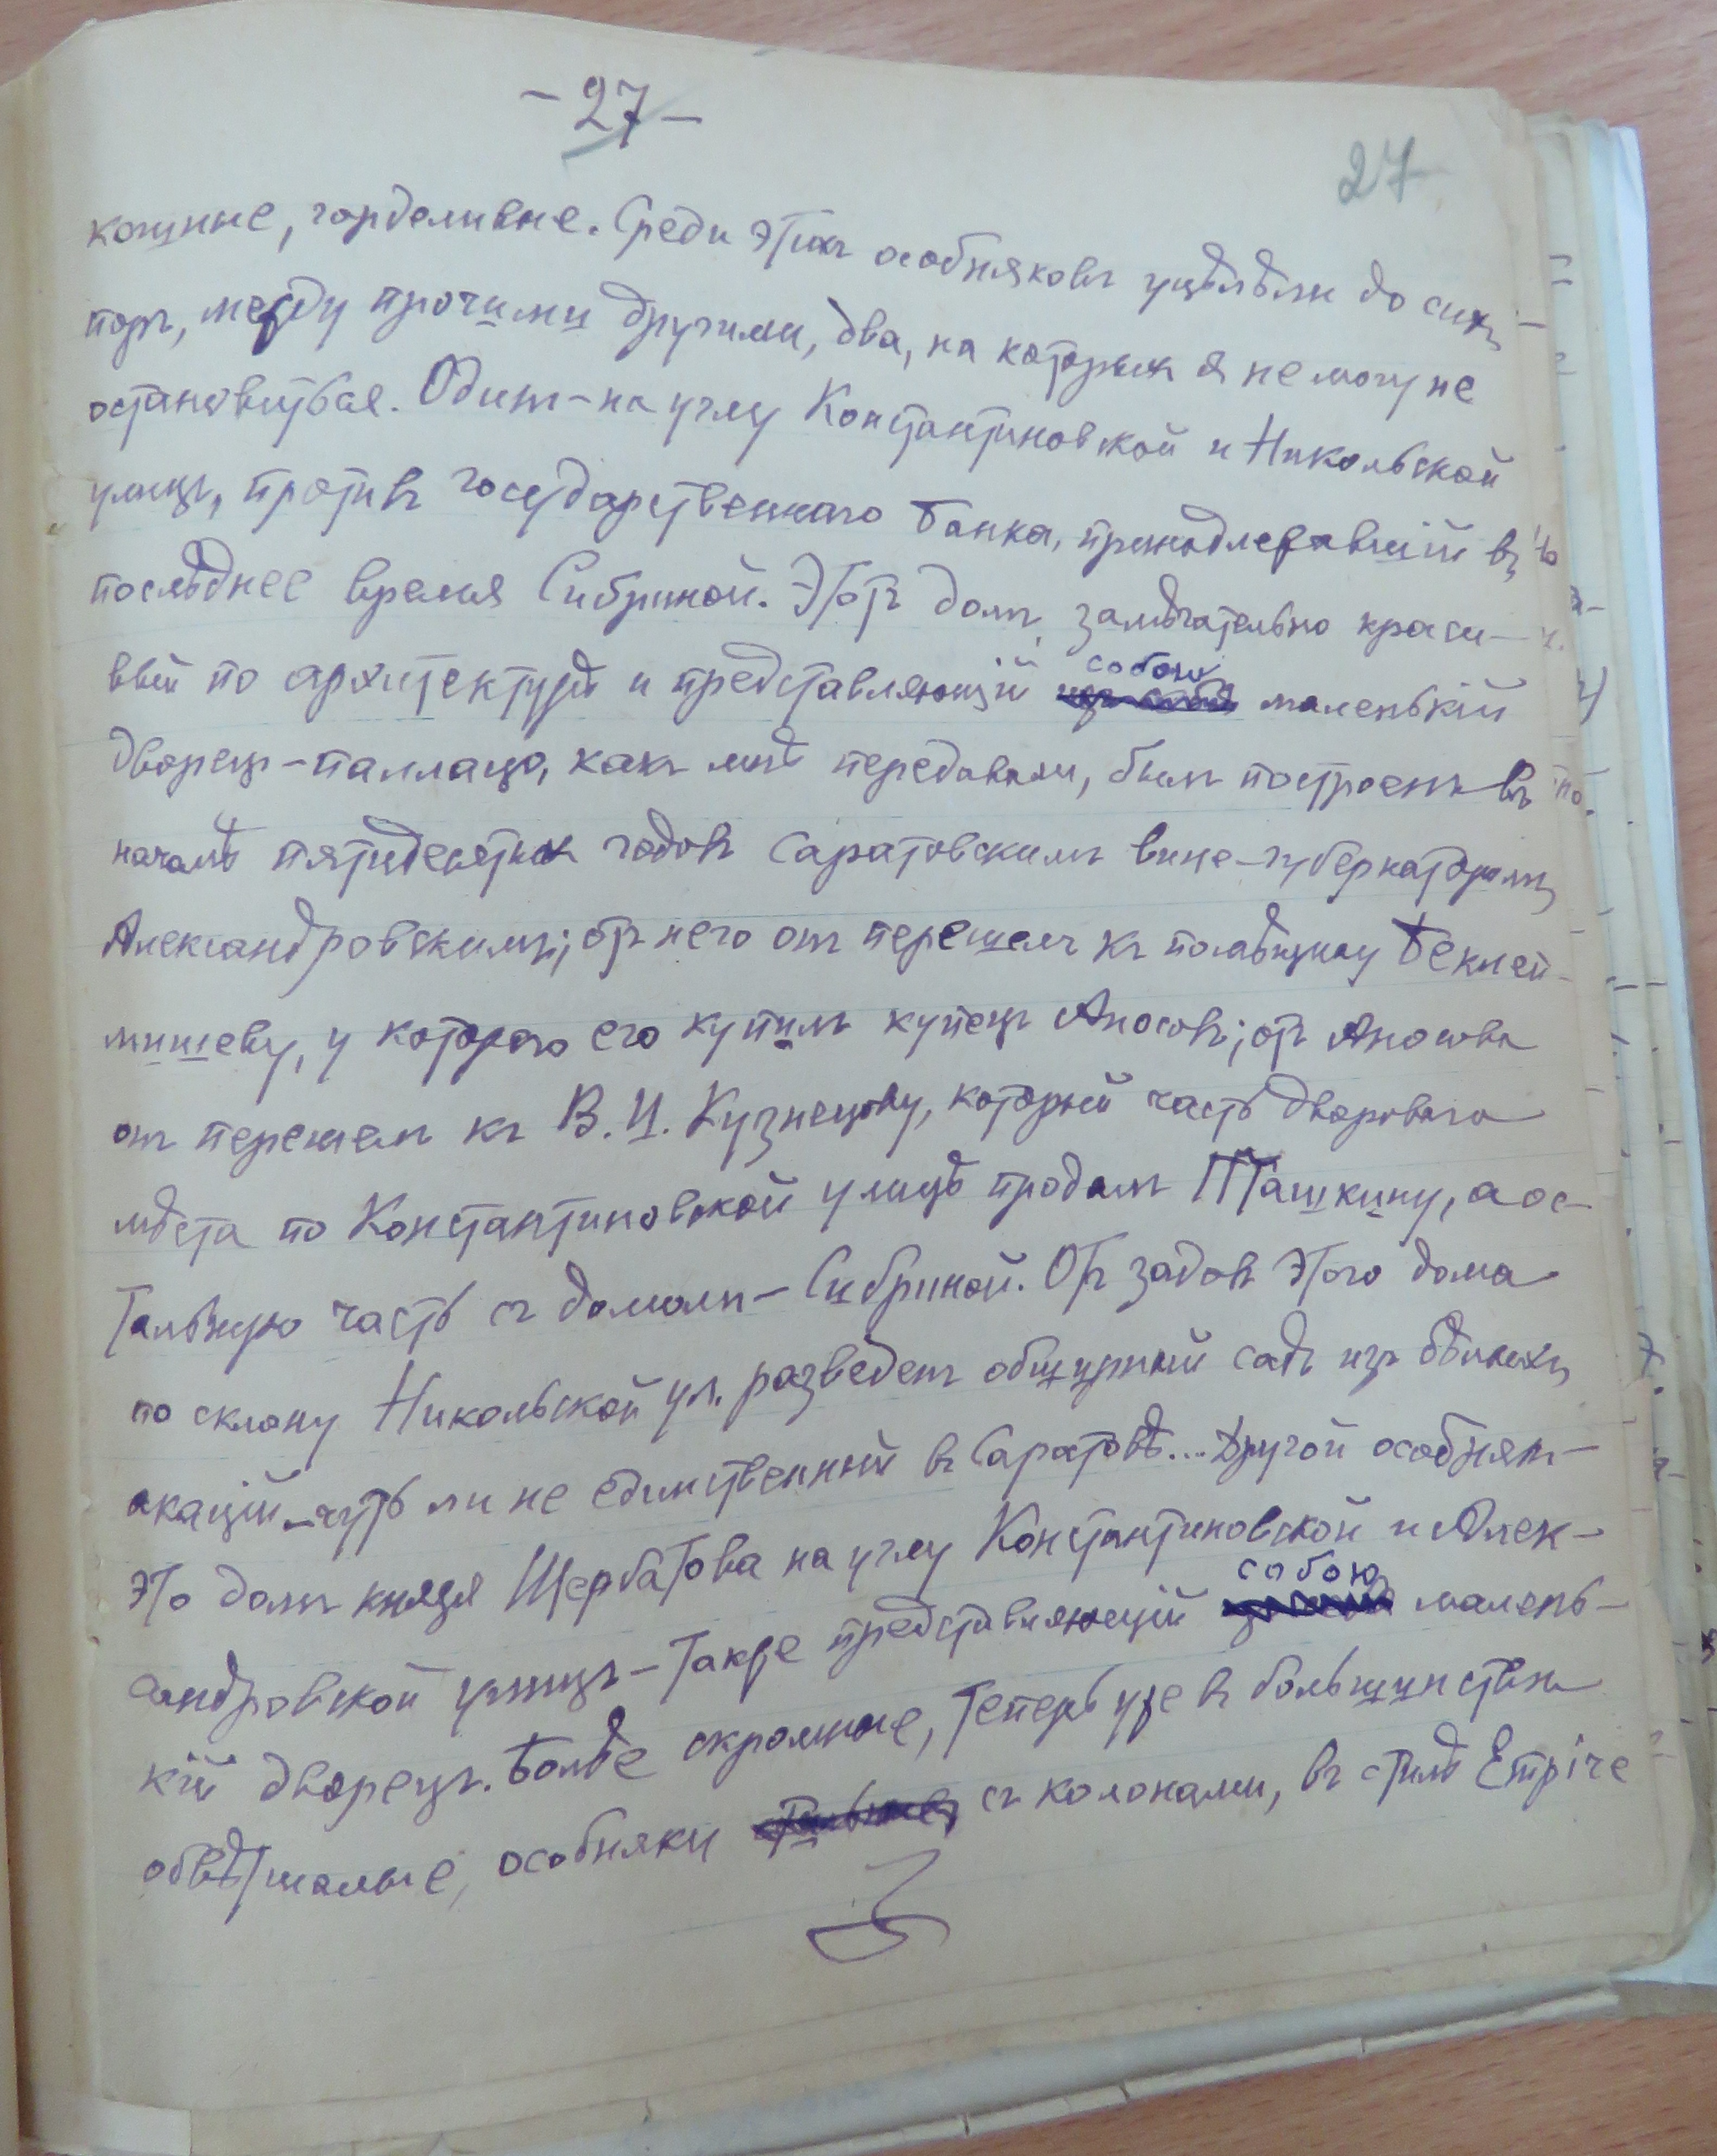 -27-
27
кошные, горделивые. Среди этихъ особняковъ уцѣлѣли до сихъ
поръ, между прочими другими, два, на которыхъ я не могу не
остановиться. Одинъ-на углу Константиновской и Никольской
улицъ, противъ государственнаго банка, принадлежавшій въ
послѣднее время Сибриной. Этотъ домъ, замѣчательно краси-
вый по архитектурѣ и представляющій собою маленькій
дворецъ-паллацо, какъ мнѣ передавали, былъ построенъ въ
началѣ пятидесятыхъ годовъ саратовскимъ вице-губернаторомъ
Александровскимъ; отъ него онъ перешелъ къ помѣщику Беклей-
мишеву, у котораго его купилъ купецъ Аносовъ; отъ Аносова
онъ перешелъ къ В.И. Кузнецову, который часть двороваго
мѣста по Константиновской улицѣ продалъ Пташкину, а ос-
тальную часть съ домомъ-Сибриной. Отъ задовъ этого дома
по склону Никольской ул. разведенъ обширный садъ изъ бѣлыхъ
акацій-чуть ли не единственный въ Саратовѣ... Другой особнякъ-
это домъ князя Щербатова на углу Константиновской и Алек-
сандровской улицъ-также представляющій собою малень-
кій дворецъ. Болѣе скромные, теперь уже въ большинствѣ
обвѣтшалые, особняки съ колонами, въ стилѣ Empire